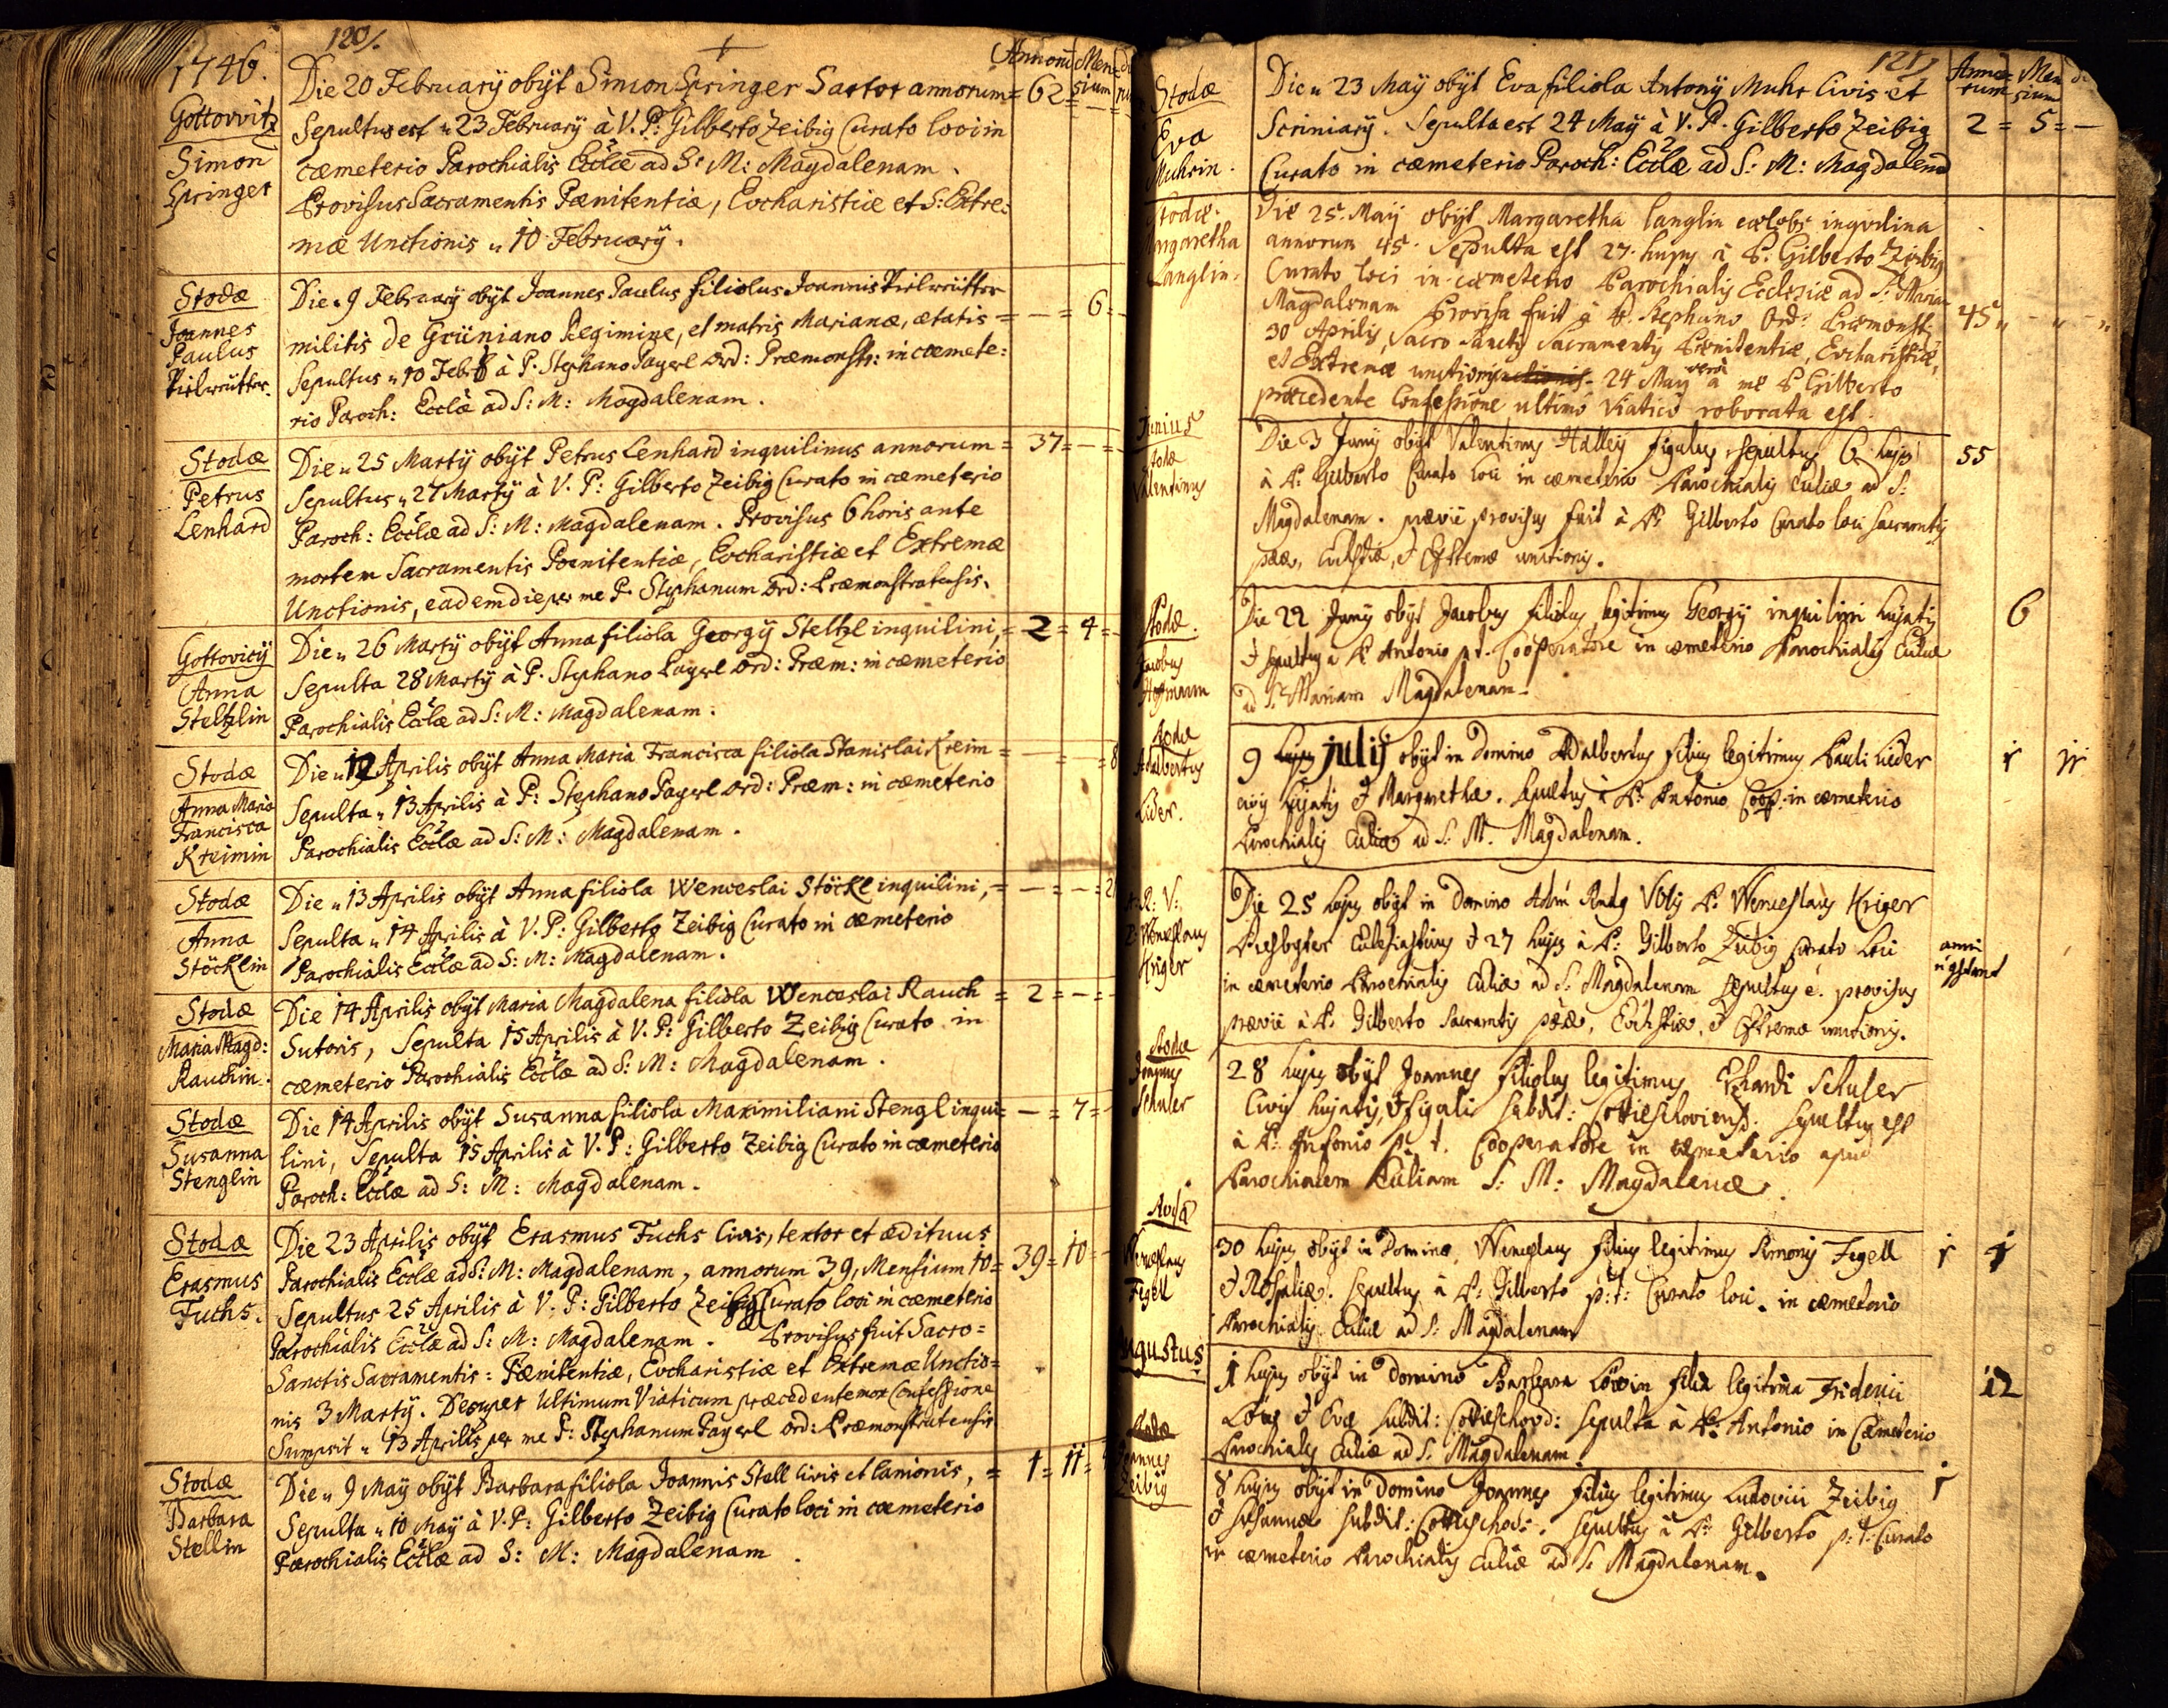 120/.
1746.
Annorū Men=
sium
Gottovvitz
Simon
Springer
Die 20 Februarÿ obÿt Simon Springer Sartor annorum = 62 = —
Sepultus est „ 23 Februarÿ à V. P: Gilberto Zeibig Curato loci in
cæmeterio Parochialis Ecclæ ad S: M: Magdalenam.
Provisus Sacramentis Pænitentiæ, Eucharistiæ et S: Extre:
mæ Unctionis „ 10 Februarÿ.
Stodæ
Joannes
Paulus
Die „ 9 Februarÿ obÿt Joannes Paulus filiolus Joannis
militis de Grüniano Regimine, et matris Marianæ, ætatis = — = 6 =
Sepultus „ 10 Febr à P. Stephano Payerl ord: Præmonstr: in cœmete:
rio Paroch: Ecclæ ad S: M: Magdalenam.
Stodæ
Petrus
Lenhard
Die „ 25 Martÿ obÿt Petrus Lenhard inquilinus annorum = 37 = —
Sepultus „ 27 Martÿ à V. P: Gilberto Zeibig Curato in cæmeterio
Paroch: Ecclæ ad S: M: Magdalenam. Provisus 6 horis ante
mortem Sacramentis Pœnitentiæ, Eucharistiæ et Extremæ
Unctionis, eadem die per me P. Stephanum ord: Præmonstratensis.
Gottovicÿ
Anna
Steltzlin
Die „ 26 Martÿ obÿt Anna filiola Georgÿ Steltzl inquilini, = 2 = 4 =
Sepulta 28 Martÿ à P. Stephano Payerl ord: Præm: in cæmeterio
Parochialis Ecclæ ad S: M: Magdalenam.
Stodæ
Anna Maria
Francisca
Kreimin
Die „ 12 Aprilis obÿt Anna Maria Francisca filiola Stanislai Kreim = — = 8
Sepulta „ 13 Aprilis à P: Stephano Payerl ord: Præm: in cæmeterio
Parochialis Ecclæ ad S: M: Magdalenam.
Stodæ
Anna
Stöcklin
Die „ 13 Aprilis obÿt Anna filiola Wenceslai Stöckl inquilini, = — = — = 2
Sepulta „ 14 Aprilis à V. P: Gilberto Zeibig Curato in cæmeterio
Parochialis Ecclæ ad S: M: Magdalenam.
Stodæ
Maria Magd:
Rauchin.
Die 14 Aprilis obÿt Maria Magdalena filiola Wenceslai Rauch = 2 = — =
Sutoris, Sepulta 15 Aprilis à V. P: Gilberto Zeibig Curato in
cæmeterio Parochialis Ecclæ ad S: M: Magdalenam.
Stodæ
Susanna
Stenglin
Die 14 Aprilis obÿt Susanna filiola Maximiliani Stengl inqui= — = 7 =
lini, Sepulta 15 Aprilis à V. P: Gilberto Zeibig Curato in cæmeterio
Paroch: Ecclæ ad S: M: Magdalenam.
Stodæ
Erasmus
Fuchs.
Die 23 Aprilis obÿt Erasmus Fuchs Civis, textor et ædituus
Parochialis Ecclæ ad S: M: Magdalenam, annorum 39, Mensium 10 = 39 = 10 =
Sepultus 25 Aprilis à V. P: Gilberto Zeibig Curato loci in cæmeterio
Parochialis Ecclæ ad S: M: Magdalenam. Provisus fuit Sacro=
Sanctis Sacramentis: Pænitentiæ, Eucharistiæ et Extremæ Unctio=
nis 3 Martÿ. Desuper Ultimum Viaticum præcedente mox Confessione
Sumpsit „ 13 Aprilis per me P: Stephanum Payerl ord: Præmonstratensis
Stodæ
Barbara
Stellin
Die „ 9 Maÿ obÿt Barbara filiola Joannis Stell Civis et Lanionis, = 1 = 11 =
Sepulta „ 10 Maÿ à V. P: Gilberto Zeibig Curato loci in cæmeterio
Parochialis Ecclæ ad S: M: Magdalenam.
121/
Anno=
rum
Men
sium
Stodæ
Eva
Muhrin.
Die „ 23 Maÿ obÿt Eva filiola Antonÿ Muhr Civis et
Scriniarÿ. Sepulta est 24 Maÿ à V. P. Gilberto Zeibig 2 = 5 = —
Curato in cæmeterio Paroch: Ecclæ ad S: M: Magdalenā
Stodæ.
Margaretha
Langlin.
Die 25. Maÿ obÿt Margaretha Langlin cælebs inquilina
annorum 45. Sepulta est 27. hujus à P. Gilberto Zeibig
Curato loci in cæmeterio Parochialis Ecclesiæ ad S: Mariam
Magdalenam Provisa fuit à P. Stephano Ord: Præmonst: 45 „ „ „
30 Aprilis, Sacro Sanctis Sacramentis Pœnitentiæ, Eucharistiæ,
et Extremæ unctionis 24 Maÿ verò à me P Gilberto
præcedente Confessione ultimo Viatico roborata est.
Junius
Stodæ
Valentinus
Die 3 Junÿ obÿt Valentinus Halleÿ figulus sepultus 6 hujus 55
à P. Gilberto Curato loci in cæmeterio Parochialis Eccliæ ad S:
Magdalenam. præviè provisus fuit à P. Gilberto Curato loci Sacramtis
pææ, Euchstiæ, & Extremæ unctionis.
Stodæ.
Jacobus
Hoffmann
Die 22 Junÿ obÿt Jacobus filiolus legitimus Georgÿ inquilini hujatis 6
& sepultus à P. Antonio p.t. Cooperatore in cæmeterio Parochialis Eccliæ
ad S. Mariam Magdalenam.
Stodæ
Adalbertus
Lider.
9 hujus julij obÿt in Domino Adalbertus filius legitimus Pauli Lieder 1 11
civis hujatis & Margarethæ. Sepultus à P. Antonio Coop. in cæmeterio
Parochialis Eccliæ ad S. M. Magdalenam.
A. R: V:
P: Wenceslaus
Kriger
Die 25 hujus obÿt in Domino Adm Rndus P. Wenceslaus Kriger
Presbyter Ecclesiasticus & 27 hujus à P. Gilberto Zeibig Curato loci
in cæmeterio Parochialis Eccliæ ad S. Magdalenam sepultus è. provisus
præviè à P. Gilberto Sacramtis pææ, Euchstiæ, & Extremæ unctionis.
Stodæ
Joannes
Schuler
28 hujus obÿt Joannes filiolus legitimus Erhardi Schuler
Civis hujatis, & figuli subdit: Sepultus est
à P. Antonio p. t. Cooperatore in cæmeterio apud
Parochialem Eccliam S: M: Magdalenæ.
Wenceslaus
Fegell
30 hujus obÿt in Domino Wenceslaus filius legitimus Simonis Fegell 1 1
& Rosaliæ. Sepultus à P: Gilberto p:t: Curato loci in cæmeterio
Parochialis Eccliæ ad S. Magdalenam
Augustus
1 hujus obÿt in Domino Barbara Löwin filia legitima Friderici 12
& Evæ subdit: Sepulta à P. Antonio in Cæmeterio
Parochialis Eccliæ ad S. Magdalenam.
Stodæ
Joannes
Zeibig
8 hujus obÿt in Domino Joannes filius legitimus Ludovici Zeibig 1
& Susannæ subdit: Sepultus à P. Gilberto p. t. Curato
in cæmeterio Parochialis Eccliæ ad S. Magdalenam.